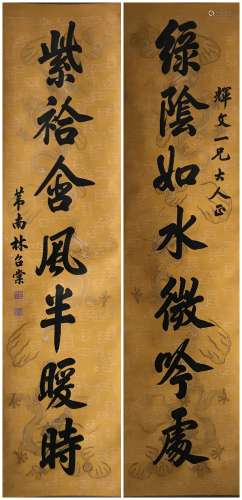 輝文一兄大人正
綠陰如水微吟處
紫袷含風半暖時
芾南林召棠